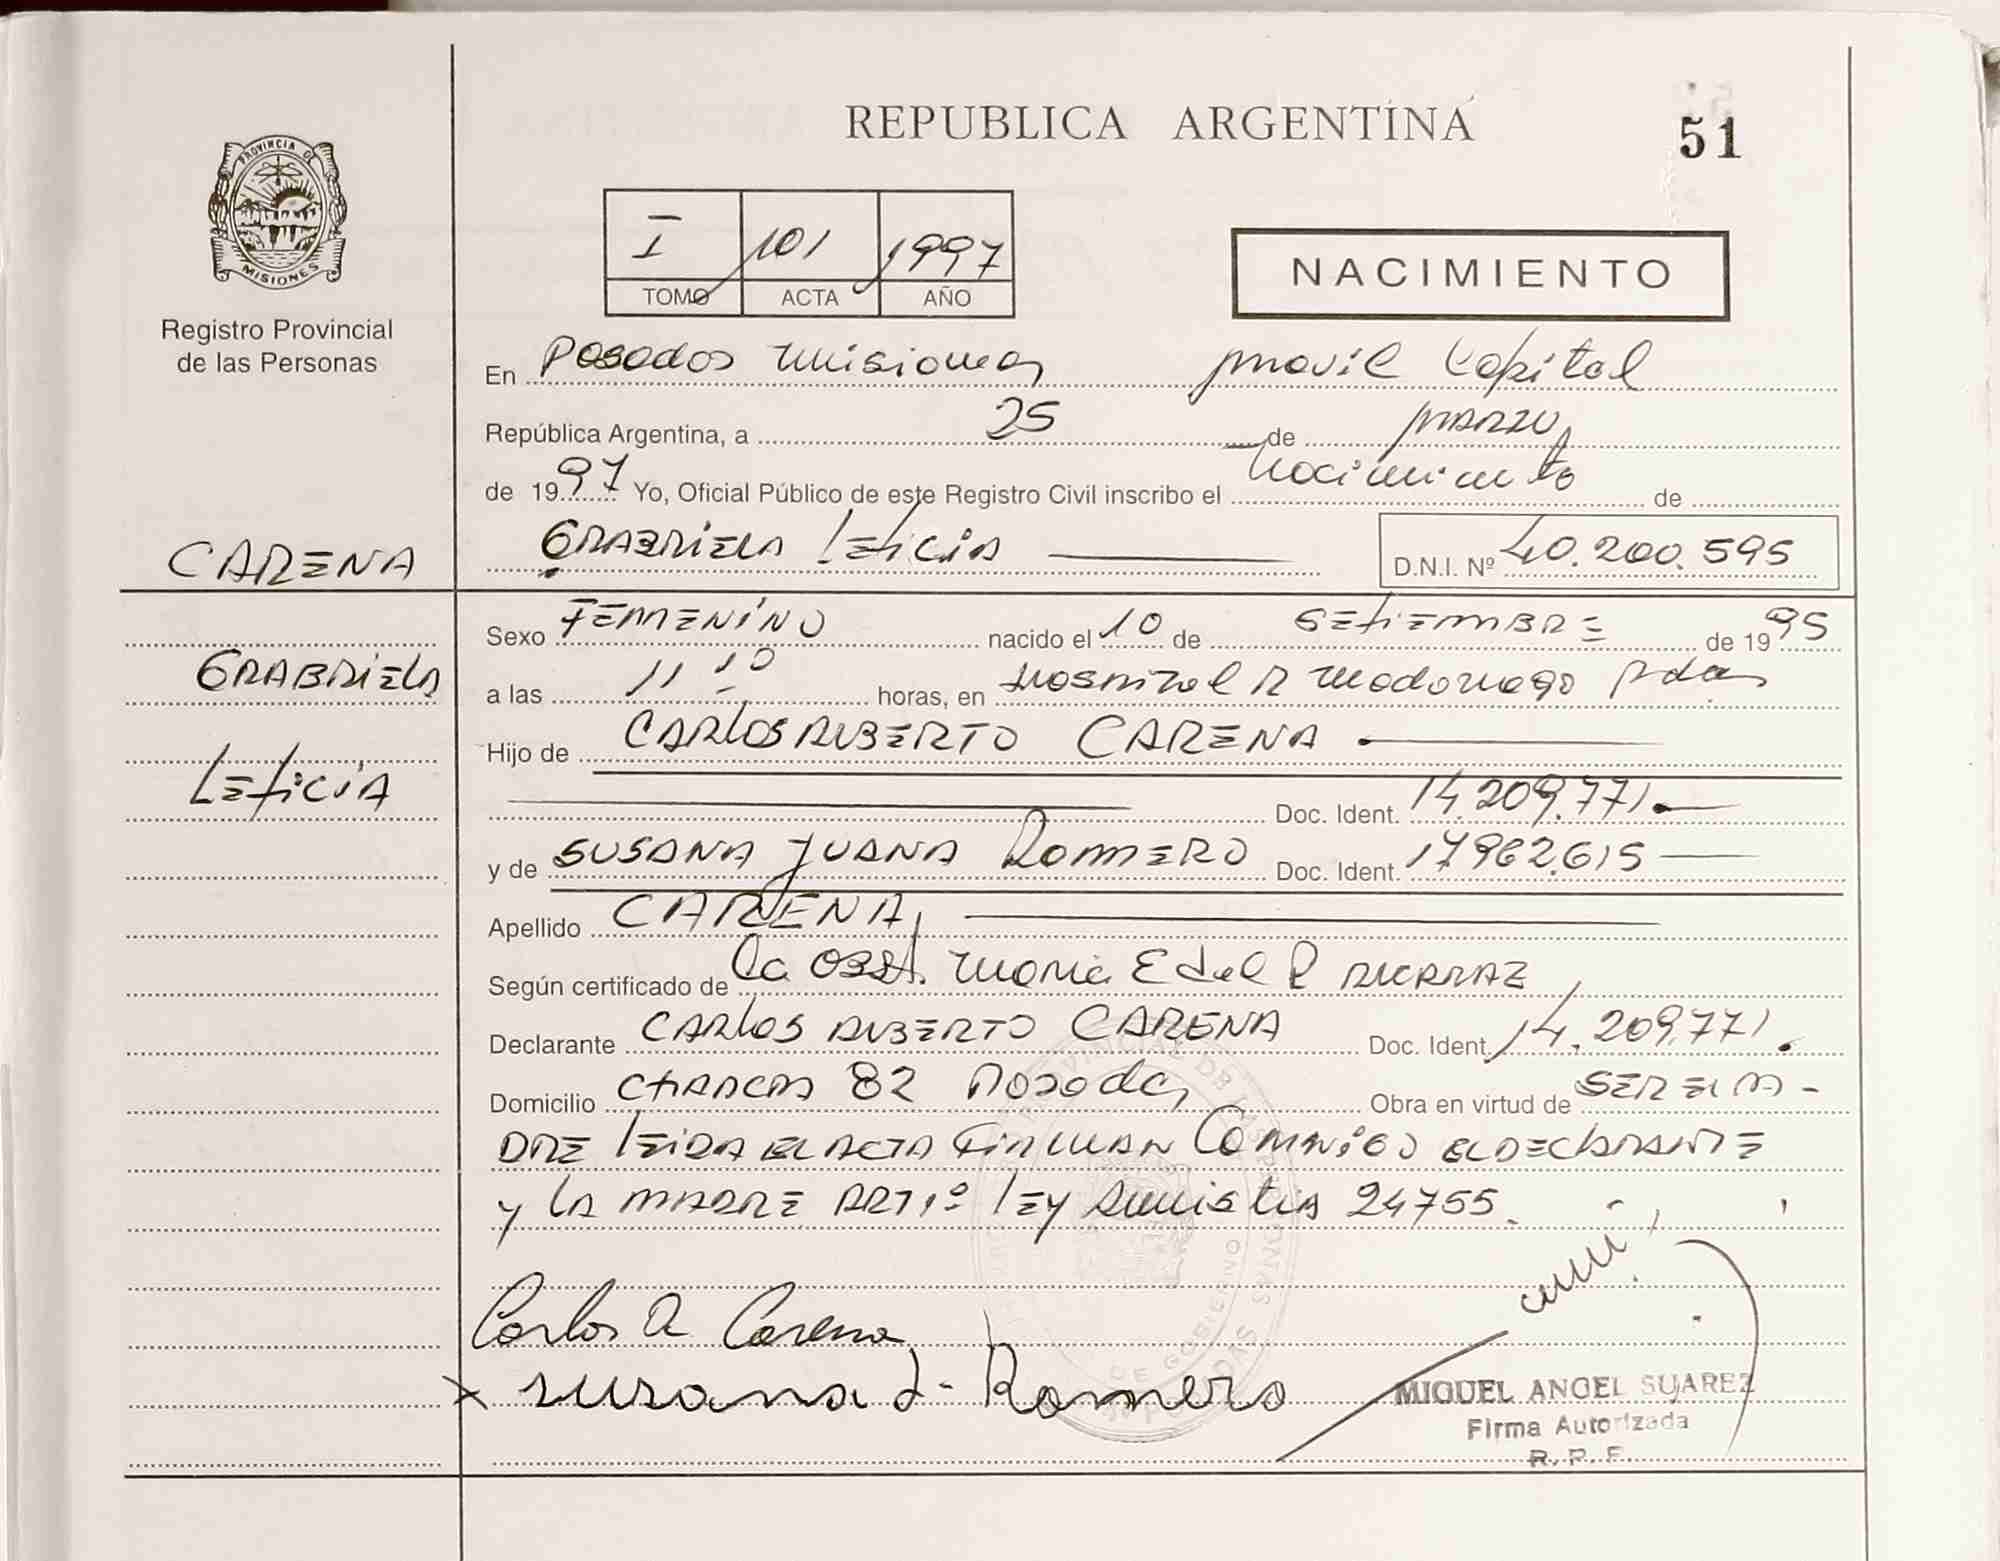 REPUBLICA ARGENTINA
51
PROVINCIA DE
MISIONES
Registro Provincial
de las Personas
I 101 1997
TOMO ACTA AÑO
NACIMIENTO
En Posadas Misiones movil Capital
República Argentina, a 25 de marzo
de 1997 Yo, Oficial Público de este Registro Civil inscribo el Nacimiento de
GRABRIELA LETICIA D.N.I. Nº 40.200.595
CARENA
GRABRIELA
LETICIA
Sexo FEMENINO nacido el 10 de SETIEMBRE de 1995
a las 11 10 horas, en Hospital R Madariaga Pdas
Hijo de CARLOS ALBERTO CARENA
Doc. Ident. 14.209.771.
y de SUSANA JUANA ROMERO Doc. Ident. 17962.615
Apellido CARENA
Según certificado de la OBST. Maria Edel R
Declarante CARLOS ALBERTO CARENA Doc. Ident. 14.209.771.
Domicilio CHACRA 82 Posadas Obra en virtud de SER EL PA-
DRE LEIDA EL ACTA FIRMAN CONMIGO EL DECLARANTE
y LA MADRE ART 1º LEY Amnistia 24755.
Carlos A Carena
x Susana J. Romero
MIGUEL ANGEL SUAREZ
Firma Autorizada
R. P. F.